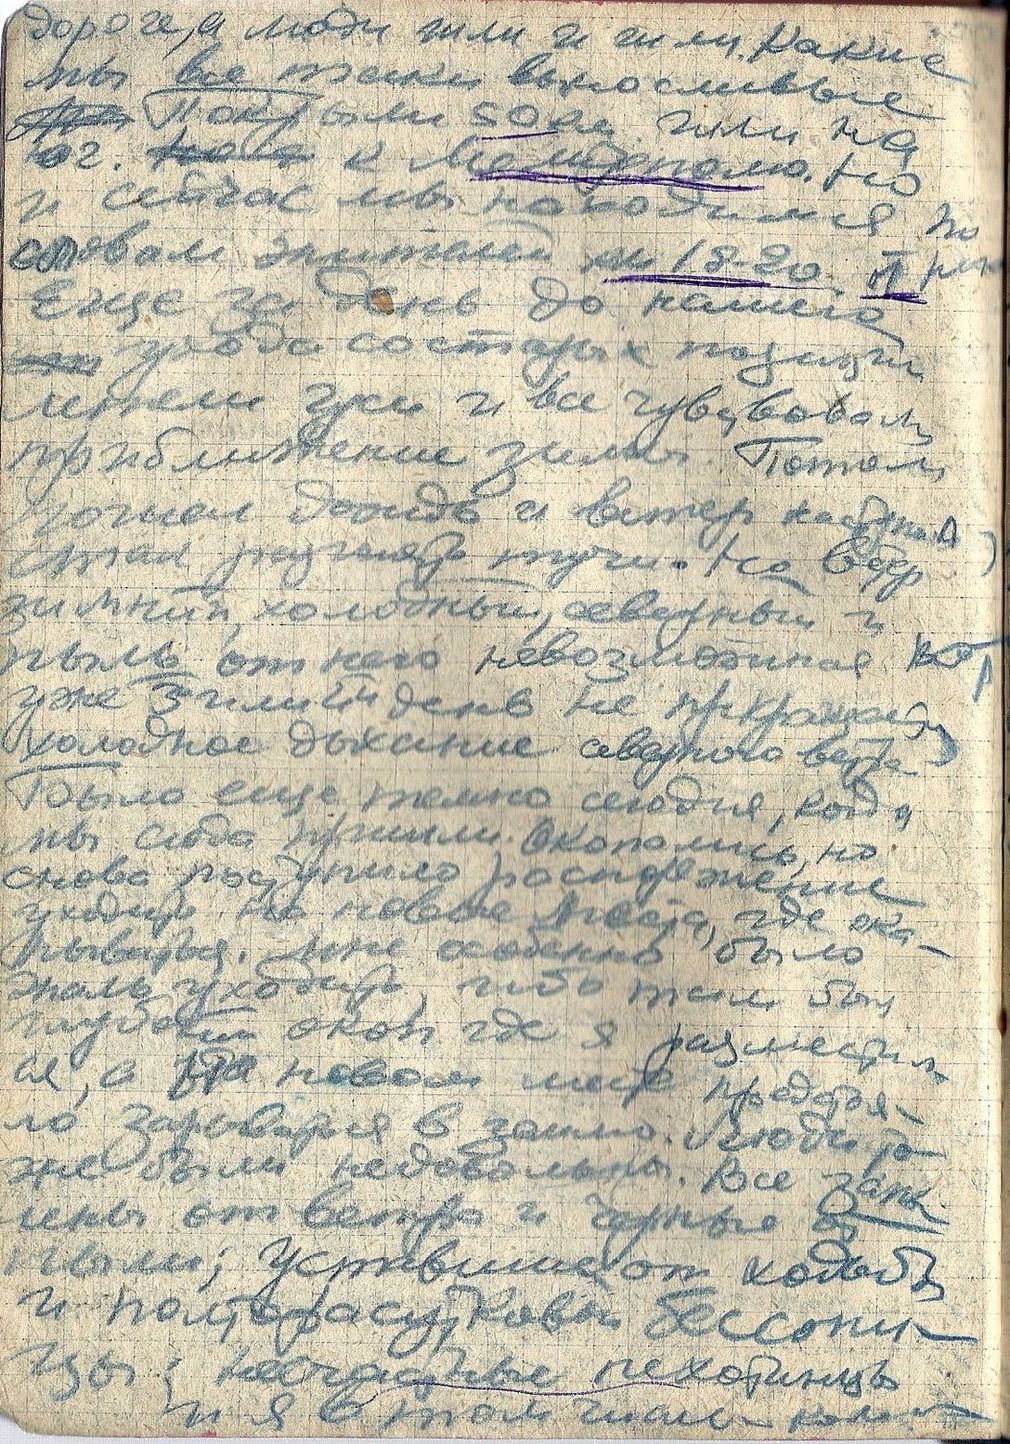 дороге, а люди шли и шли. Какие
мы все таки выносливые
Покрыли 50 км шли на
юг. к Мелитополю. Но
и сейчас мы находимся по
словам жителей км 18-20.
Еще за день до нашего
ухода со старых позиций
летели гуси и все чувствовали
приближение зимы. Потом
пошел дождь и ветер
стал разгонять тучи. Но ветер
зимний, холодный, северный и
пыль от него невозможная Вот
уже 3 или 4й день не прекращает
холодное дыхание северного ветра
Было еще темно сегодня, когда
мы сюда пришли. Окопались, но
снова поступило распоряжение
уходить на новые места, где ока-
пываться. Мне особенно было
жаль уходить, ибо там был
глубокий окоп где я разместил-
ся, а на новом месте предстоя-
ло зарываться в землю. Люди то-
же были недовольны. Все
от ветра и черные от
пыли; уставшие от ходьбы
и полторасутковой бессонни-
цы; несчастные пехотинцы
и я в том числе